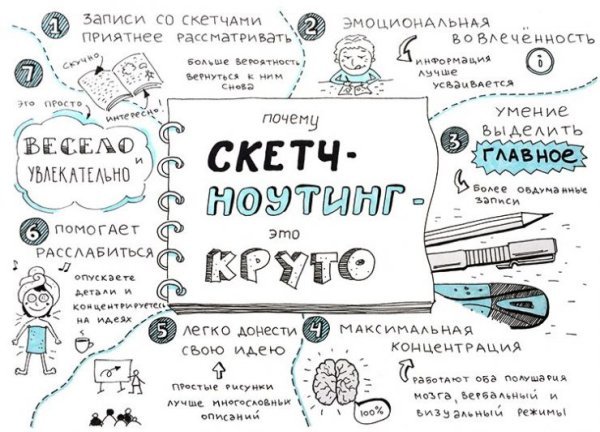 почему
СКЕТЧ-
НОУТИНГ-
это
КРУТО
1 ЗАПИСИ СО СКЕТЧАМИ
ПРИЯТНЕЕ РАССМАТРИВАТЬ
скучно
интересно!
больше вероятность
вернуться к ним
снова
2 ЭМОЦИОНАЛЬНАЯ
ВОВЛЕЧЁННОСТЬ
информация
лучше
усваивается
i
3 УМЕНИЕ
ВЫДЕЛИТЬ
ГЛАВНОЕ
более обдуманные
записи
4 МАКСИМАЛЬНАЯ
КОНЦЕНТРАЦИЯ
100%
работают оба полушария
мозга, вербальный и
визуальный режимы!
5 ЛЕГКО ДОНЕСТИ
СВОЮ ИДЕЮ
простые рисунки
лучше многословных
описаний
6 ПОМОГАЕТ
РАССЛАБИТЬСЯ
опускаете
детали и
концентрируетесь
на идеях
7
это просто
ВЕСЕЛО
И
УВЛЕКАТЕЛЬНО